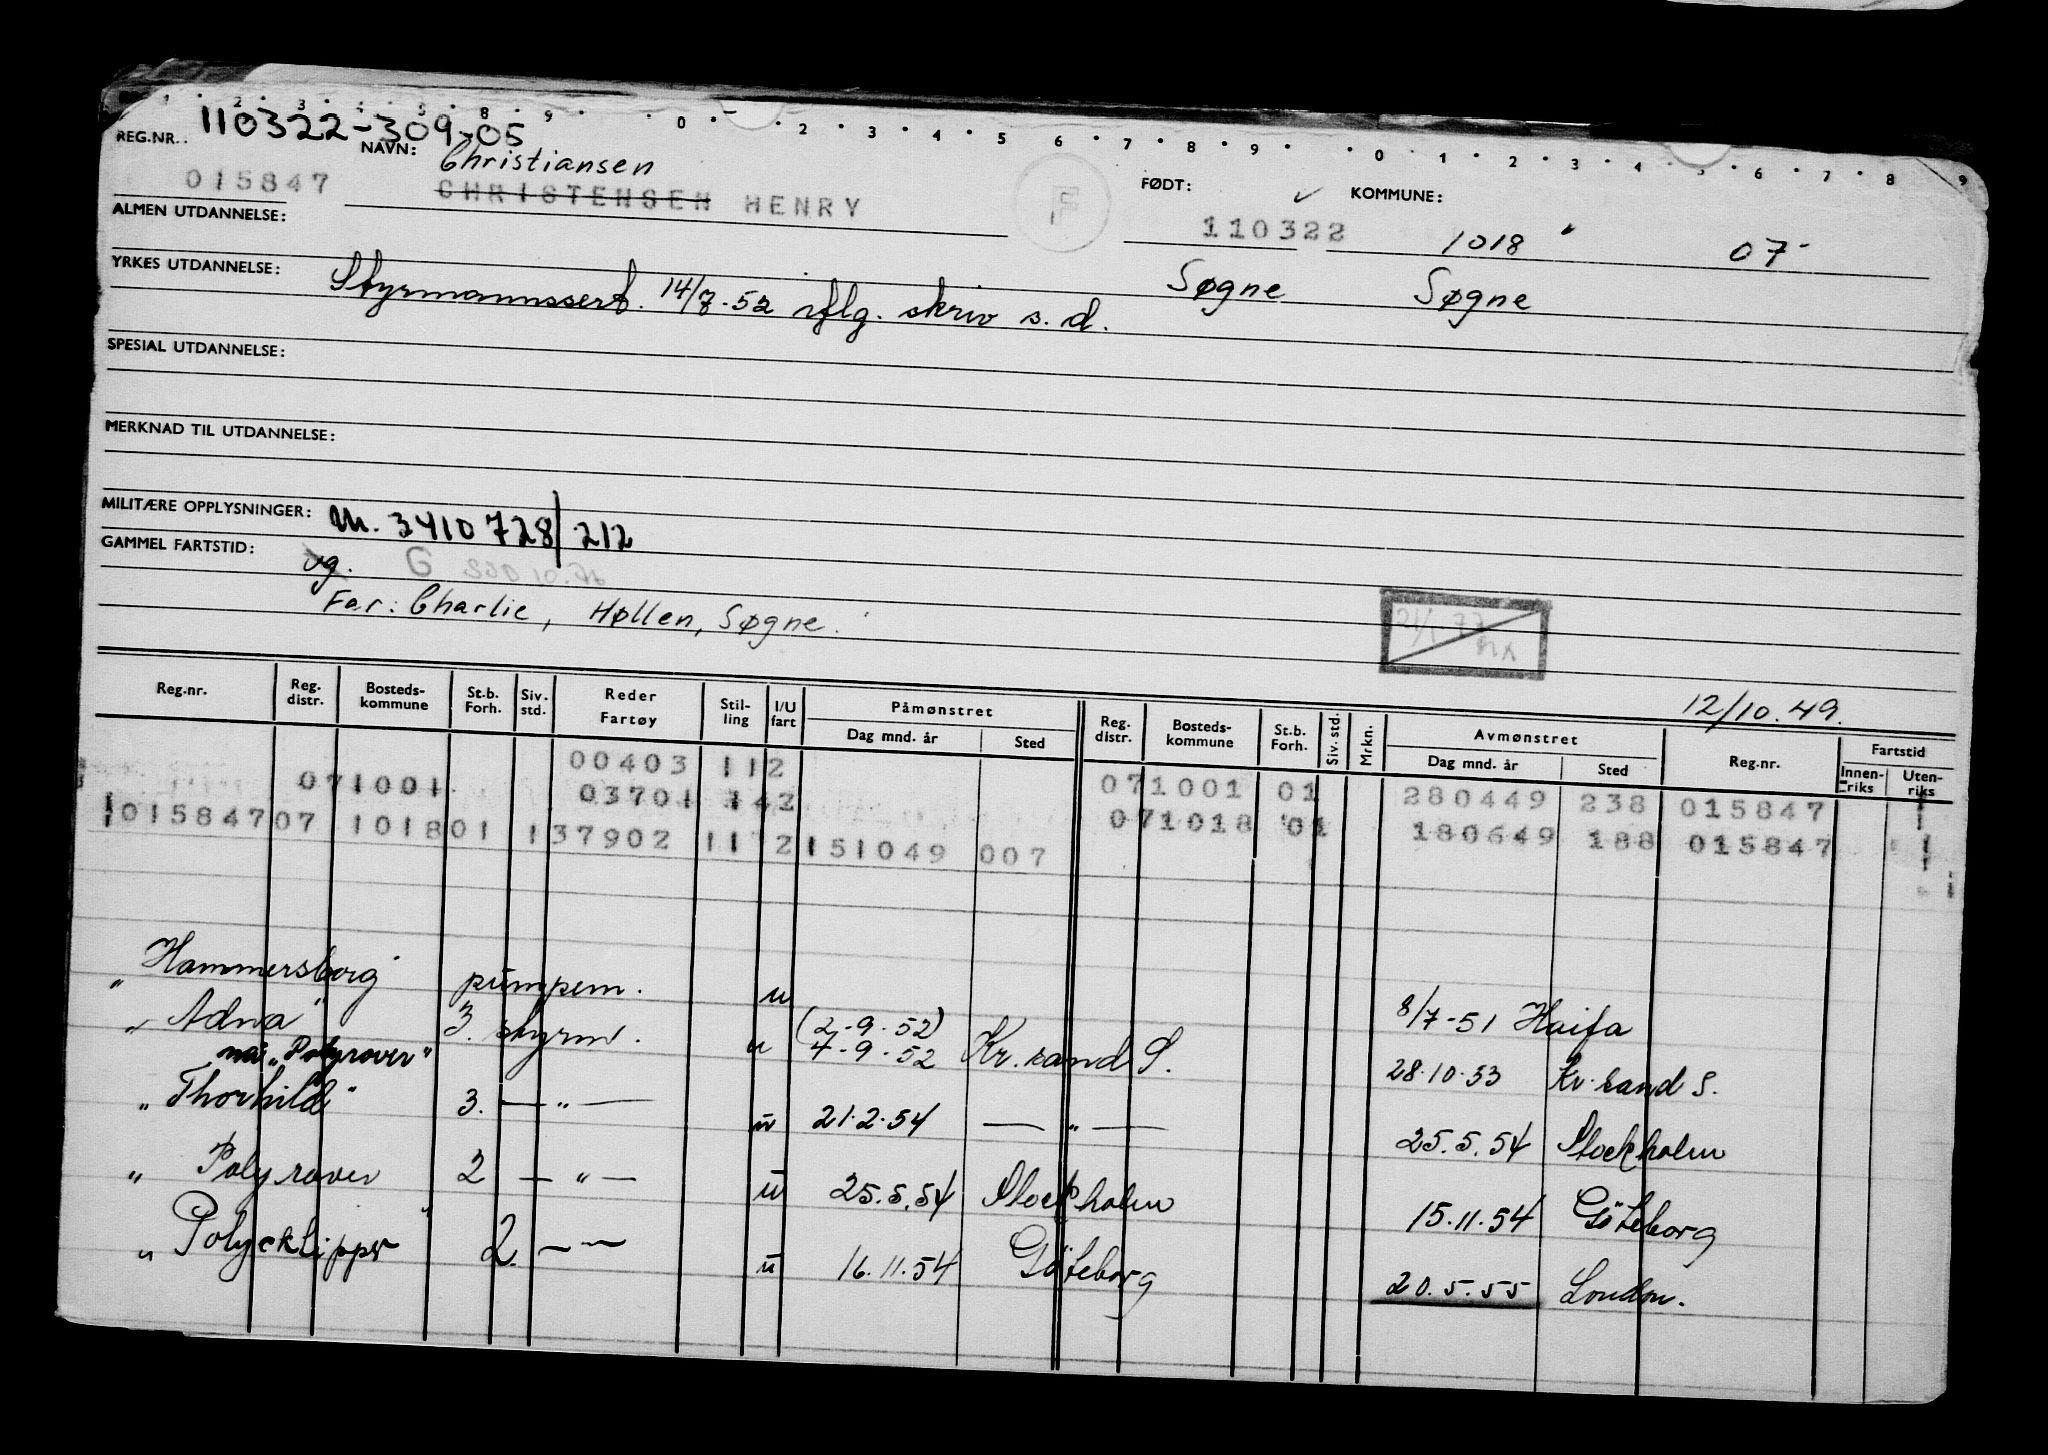 1 2 3 4 5 8 9 0 2 3 4 5 6 7 8 9 0 1 2 3 4 5 6 7 8 9
REG.NR. 110322-309-05
NAVN: Christiansen FØDT: KOMMUNE:
015847 CHRISTENSEN HENRY F 110322 1018 07
ALMEN UTDANNELSE:
Søgne Søgne
YRKES UTDANNELSE: Styrmannssert. 14/7-52 iflg. skriv s.d.
SPESIAL UTDANNELSE:
MERKNAD TIL UTDANNELSE:
MILITÆRE OPPLYSNINGER: M. 3410728/212
GAMMEL FARTSTID: vg. G
Far: Charlie, Høllen, Søgne.
12/10.49.
Reg.nr. Reg. distr. Bosteds-kommune St.b. Forh. Siv. std. Reder Fartøy Stil-ling I/U fart Påmønstret Dag mnd. år Sted Reg. distr. Bosteds-kommune St.b. Forh. Siv. std. Mrkn. Avmønstret Dag mnd. år Sted Reg.nr. Fartstid Innen-riks Uten-riks
00403 112
071001 03701 142 071001 01 280449 238 015847
101584707 101801 137902 11 2 151049 007 071018 01 180649 188 015847
" Hammersborg pumpem. u 8/7-51 Haifa
" Adna" 3. styrm. u (2-9-52) 4-9-52 Kr.sand S. 28.10.53 Kr.sand S.
nå "Polyrover"
" Thorhild" 3. — " — u 21.2.54 — " — 25.5.54 Stockholm
" Polyrover 2 — " — u 25.5.54 Stockholm 15.11.54 Göteborg
" Polyclipper" 2. — " — u 16.11.54 Göteborg 20.5.55 London.